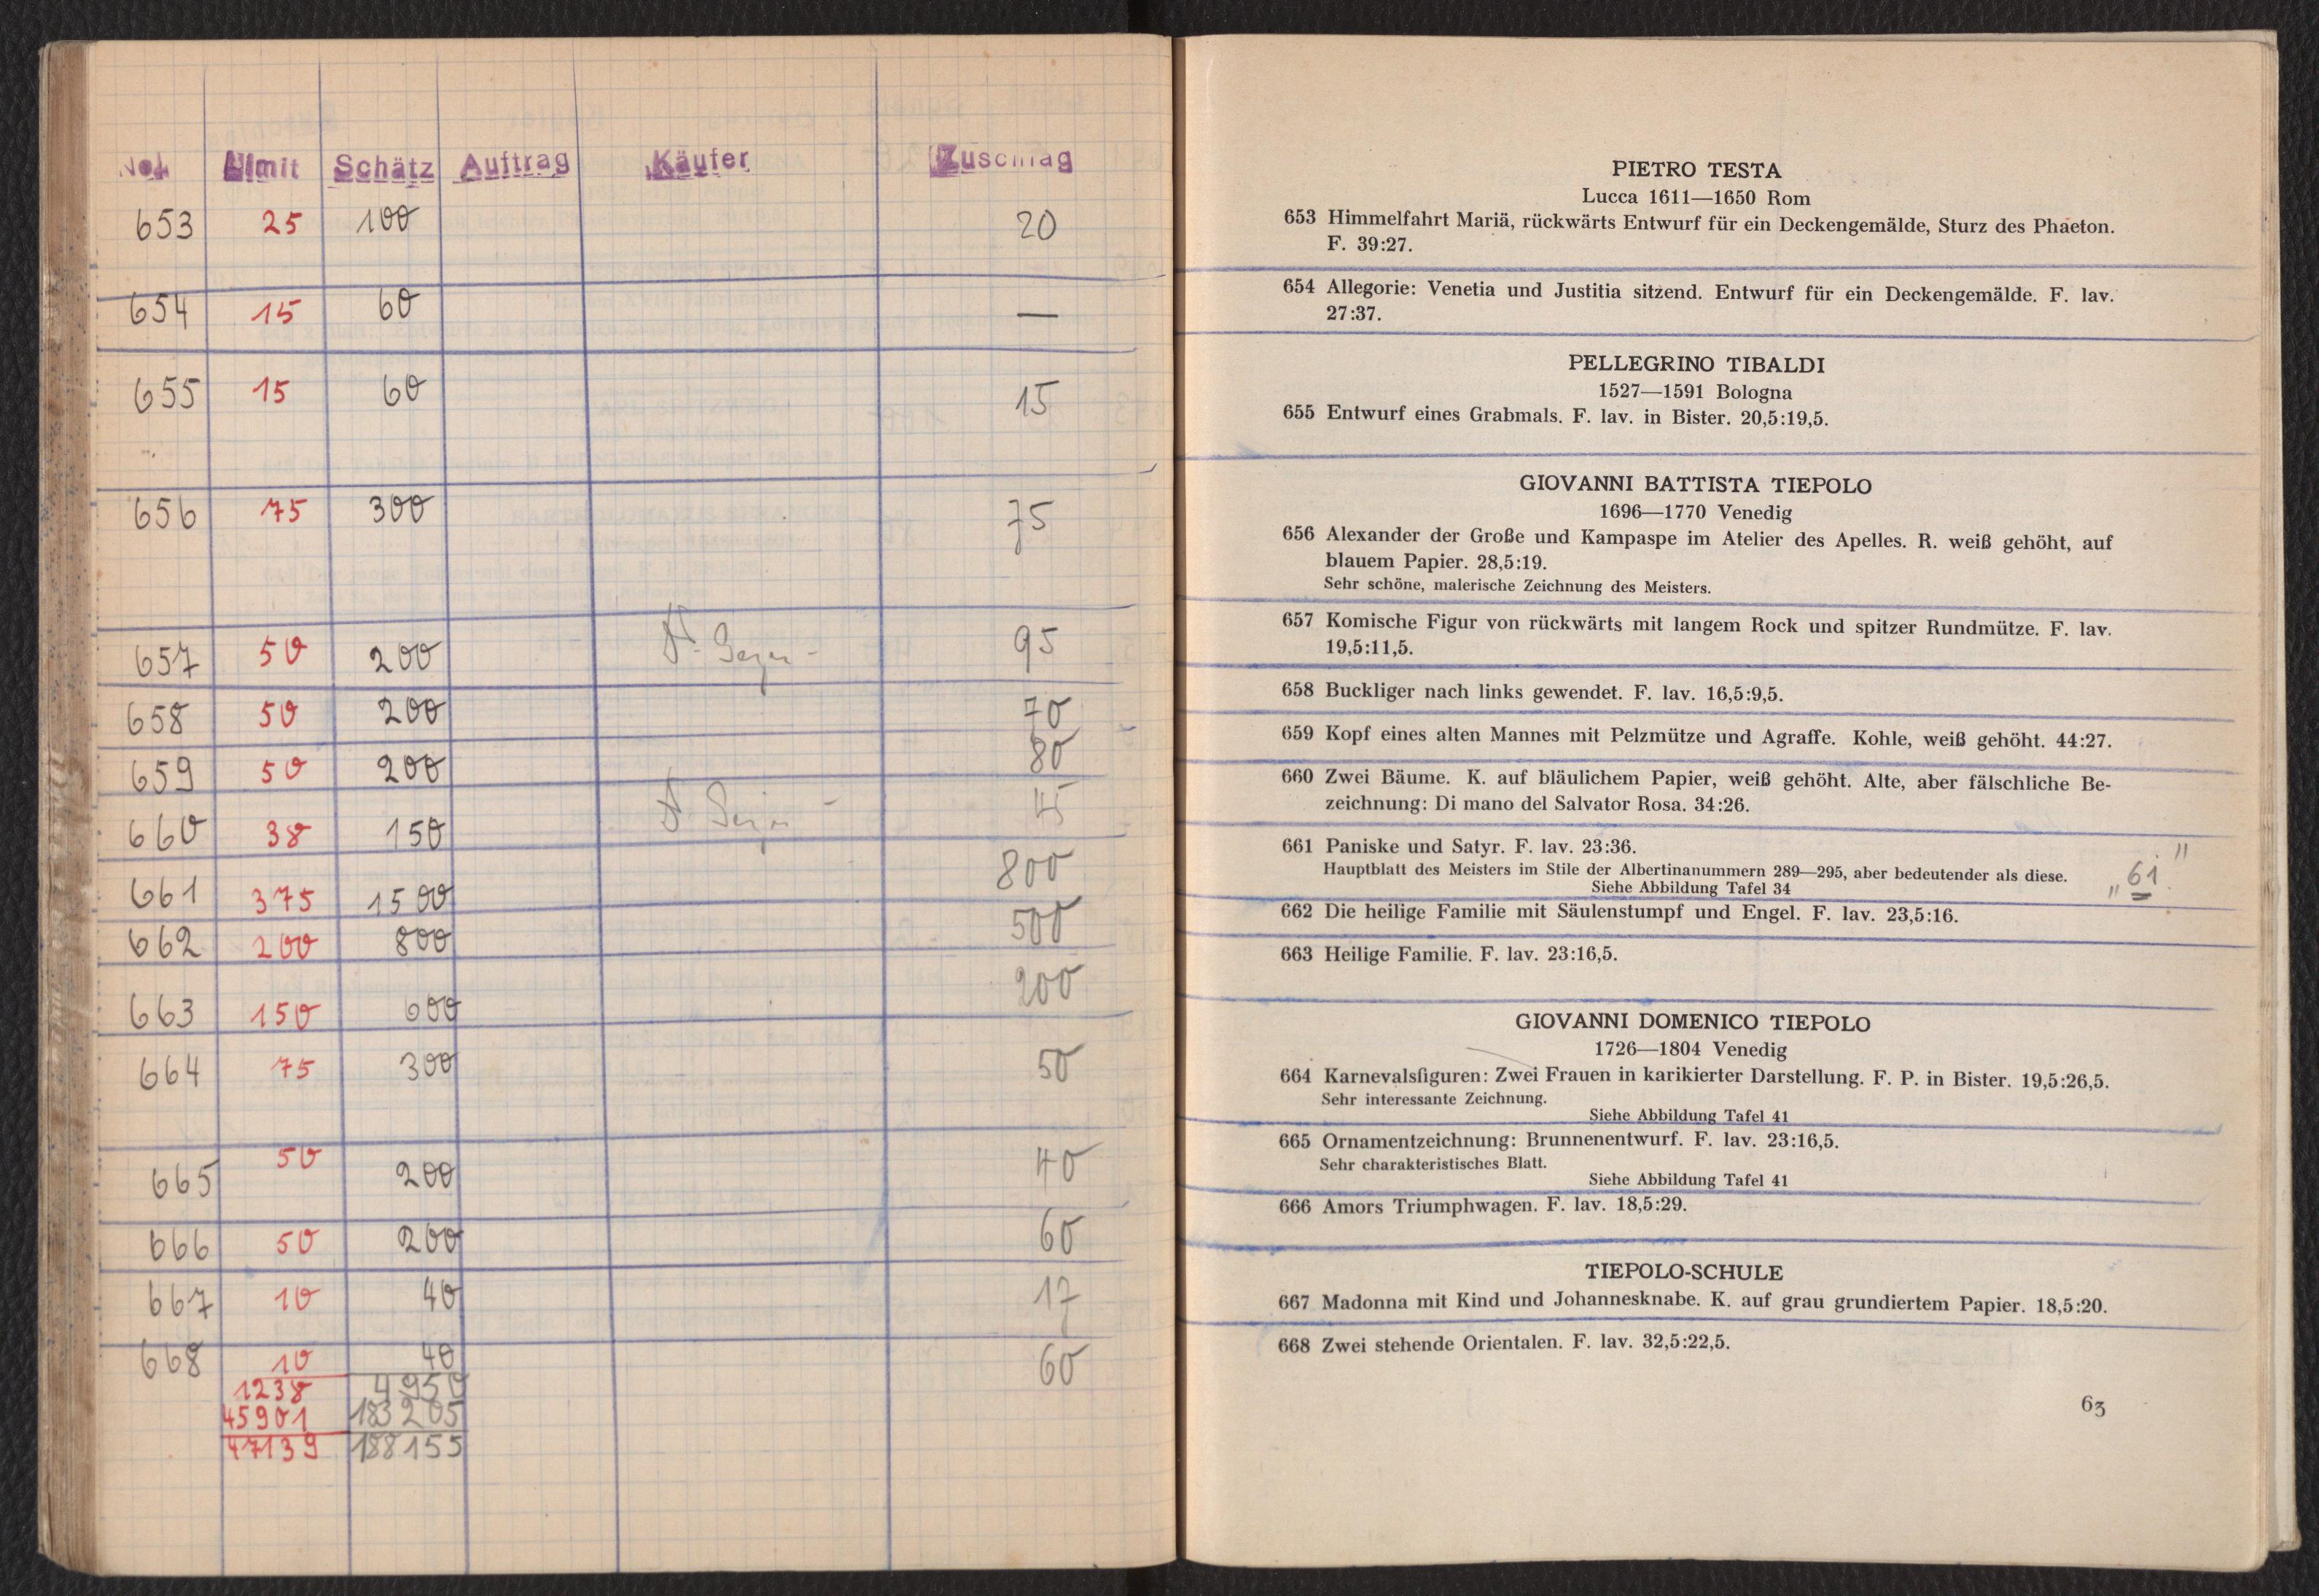 No. Limit Schätz Auftrag Käufer Zuschlag
653 25 100 20
654 15 60 —
655 15 60 15
656 75 300 75
657 50 200 95
658 50 200 70
659 50 200 80
660 38 150 45
661 375 1500 800
662 200 800 500
663 150 600 200
664 75 300 50
665 50 200 40
666 50 200 60
667 10 40 17
668 10 40 60
1238 4950
45901 183205
47139 188155
PIETRO TESTA
Lucca 1611—1650 Rom
653 Himmelfahrt Mariä, rückwärts Entwurf für ein Deckengemälde, Sturz des Phaeton.
F. 39:27.
654 Allegorie: Venetia und Justitia sitzend. Entwurf für ein Deckengemälde. F. lav.
27:37.
PELLEGRINO TIBALDI
1527—1591 Bologna
655 Entwurf eines Grabmals. F. lav. in Bister. 20,5:19,5.
GIOVANNI BATTISTA TIEPOLO
1696—1770 Venedig
656 Alexander der Große und Kampaspe im Atelier des Apelles. R. weiß gehöht, auf
blauem Papier. 28,5:19.
Sehr schöne, malerische Zeichnung des Meisters.
657 Komische Figur von rückwärts mit langem Rock und spitzer Rundmütze. F. lav.
19,5:11,5.
658 Buckliger nach links gewendet. F. lav. 16,5:9,5.
659 Kopf eines alten Mannes mit Pelzmütze und Agraffe. Kohle, weiß gehöht. 44:27.
660 Zwei Bäume. K. auf bläulichem Papier, weiß gehöht. Alte, aber fälschliche Be-
zeichnung: Di mano del Salvator Rosa. 34:26.
661 Paniske und Satyr. F. lav. 23:36.
Hauptblatt des Meisters im Stile der Albertinanummern 289—295, aber bedeutender als diese.
Siehe Abbildung Tafel 34
„61"
662 Die heilige Familie mit Säulenstumpf und Engel. F. lav. 23,5:16.
663 Heilige Familie. F. lav. 23:16,5.
GIOVANNI DOMENICO TIEPOLO
1726—1804 Venedig
664 Karnevalsfiguren: Zwei Frauen in karikierter Darstellung. F. P. in Bister. 19,5:26,5.
Sehr interessante Zeichnung.
Siehe Abbildung Tafel 41
665 Ornamentzeichnung: Brunnenentwurf. F. lav. 23:16,5.
Sehr charakteristisches Blatt.
Siehe Abbildung Tafel 41
666 Amors Triumphwagen. F. lav. 18,5:29.
TIEPOLO-SCHULE
667 Madonna mit Kind und Johannesknabe. K. auf grau grundiertem Papier. 18,5:20.
668 Zwei stehende Orientalen. F. lav. 32,5:22,5.
63